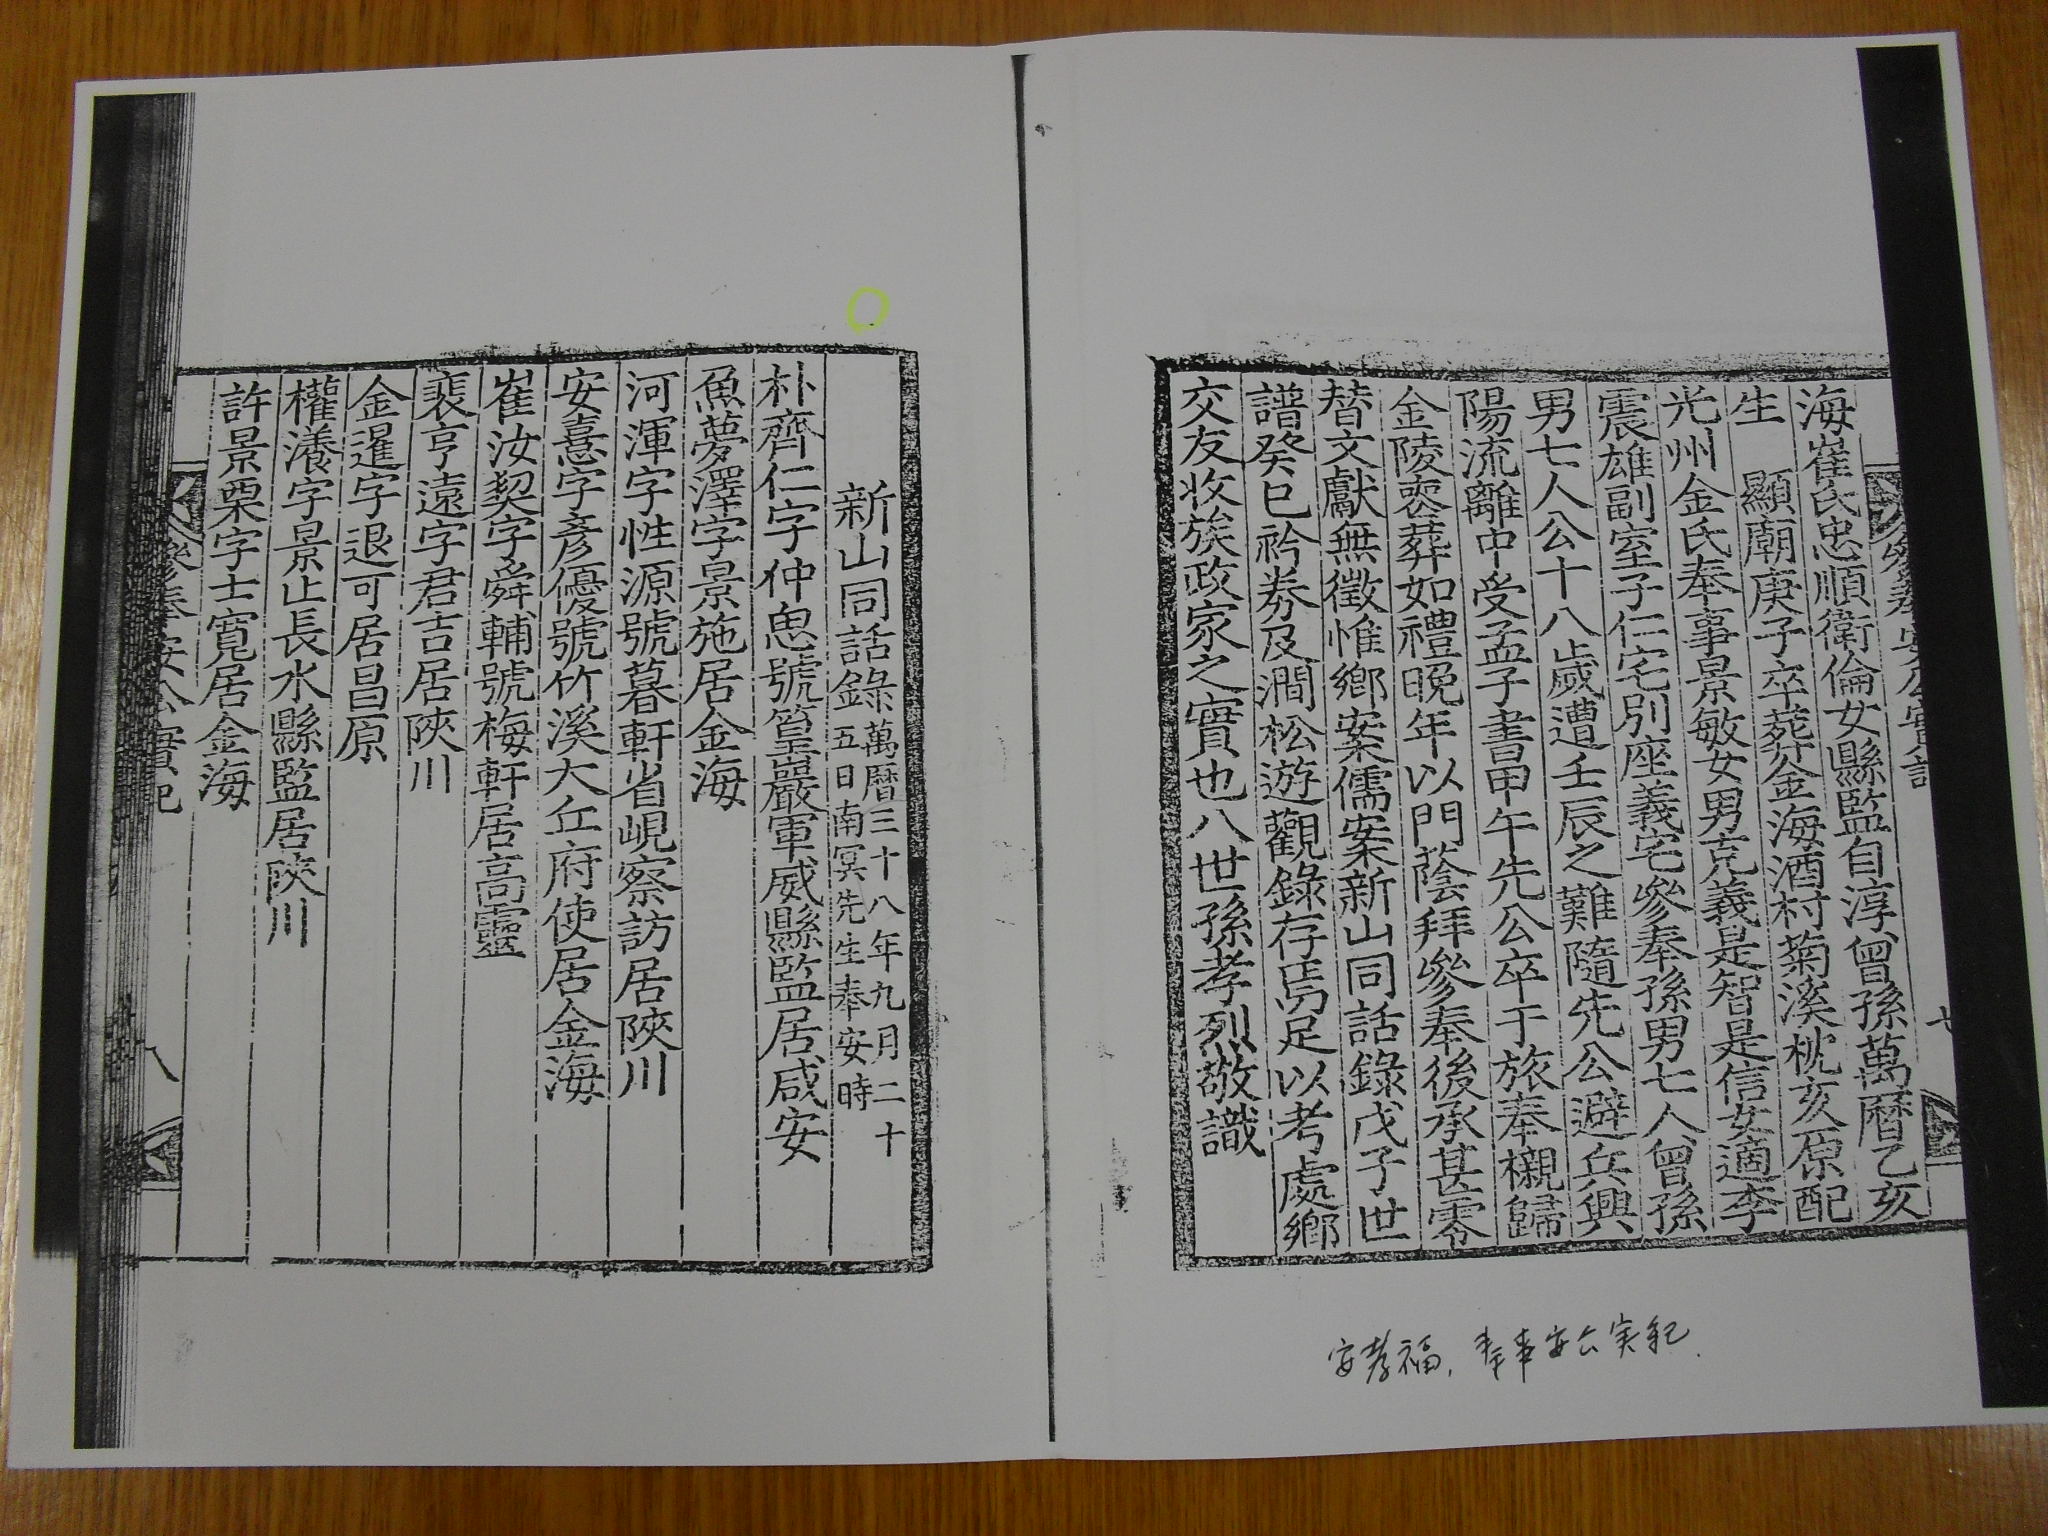 海崔氏忠順衛倫女縣監自淳曾孫萬曆乙亥
生　顯廟庚子卒葬金海酒村菊溪枕亥原配
光州金氏奉事景敏女男克義是智是信女適李
震雄副室子仁宅別座義宅參奉孫男七人曾孫
男七人公十八歲遭壬辰之難隨先公避兵興
陽流離中受孟子書甲午先公卒于旅奉櫬歸
金陵喪葬如禮晚年以門蔭拜參奉後承甚零
替文獻無徵惟鄉案儒案新山同話錄戊子世
譜癸巳衿券及澗松遊觀錄存焉足以考處鄉
交友收族政家之實也八世孫孝烈敬識
七
新山同話錄萬曆三十八年九月二十
五日南冥先生奉安時
朴齊仁字仲思號篁巖軍威縣監居咸安
魚夢澤字景施居金海
河渾字性源號暮軒省峴察訪居陜川
安憙字彥優號竹溪大丘府使居金海
崔汝契字舜輔號梅軒居高靈
裵亨遠字君吉居陜川
金暹字退可居昌原
權瀁字景止長水縣監居陜川
許景栗字士寬居金海
參奉安公實記
八
安孝福, 奉事安公実記.